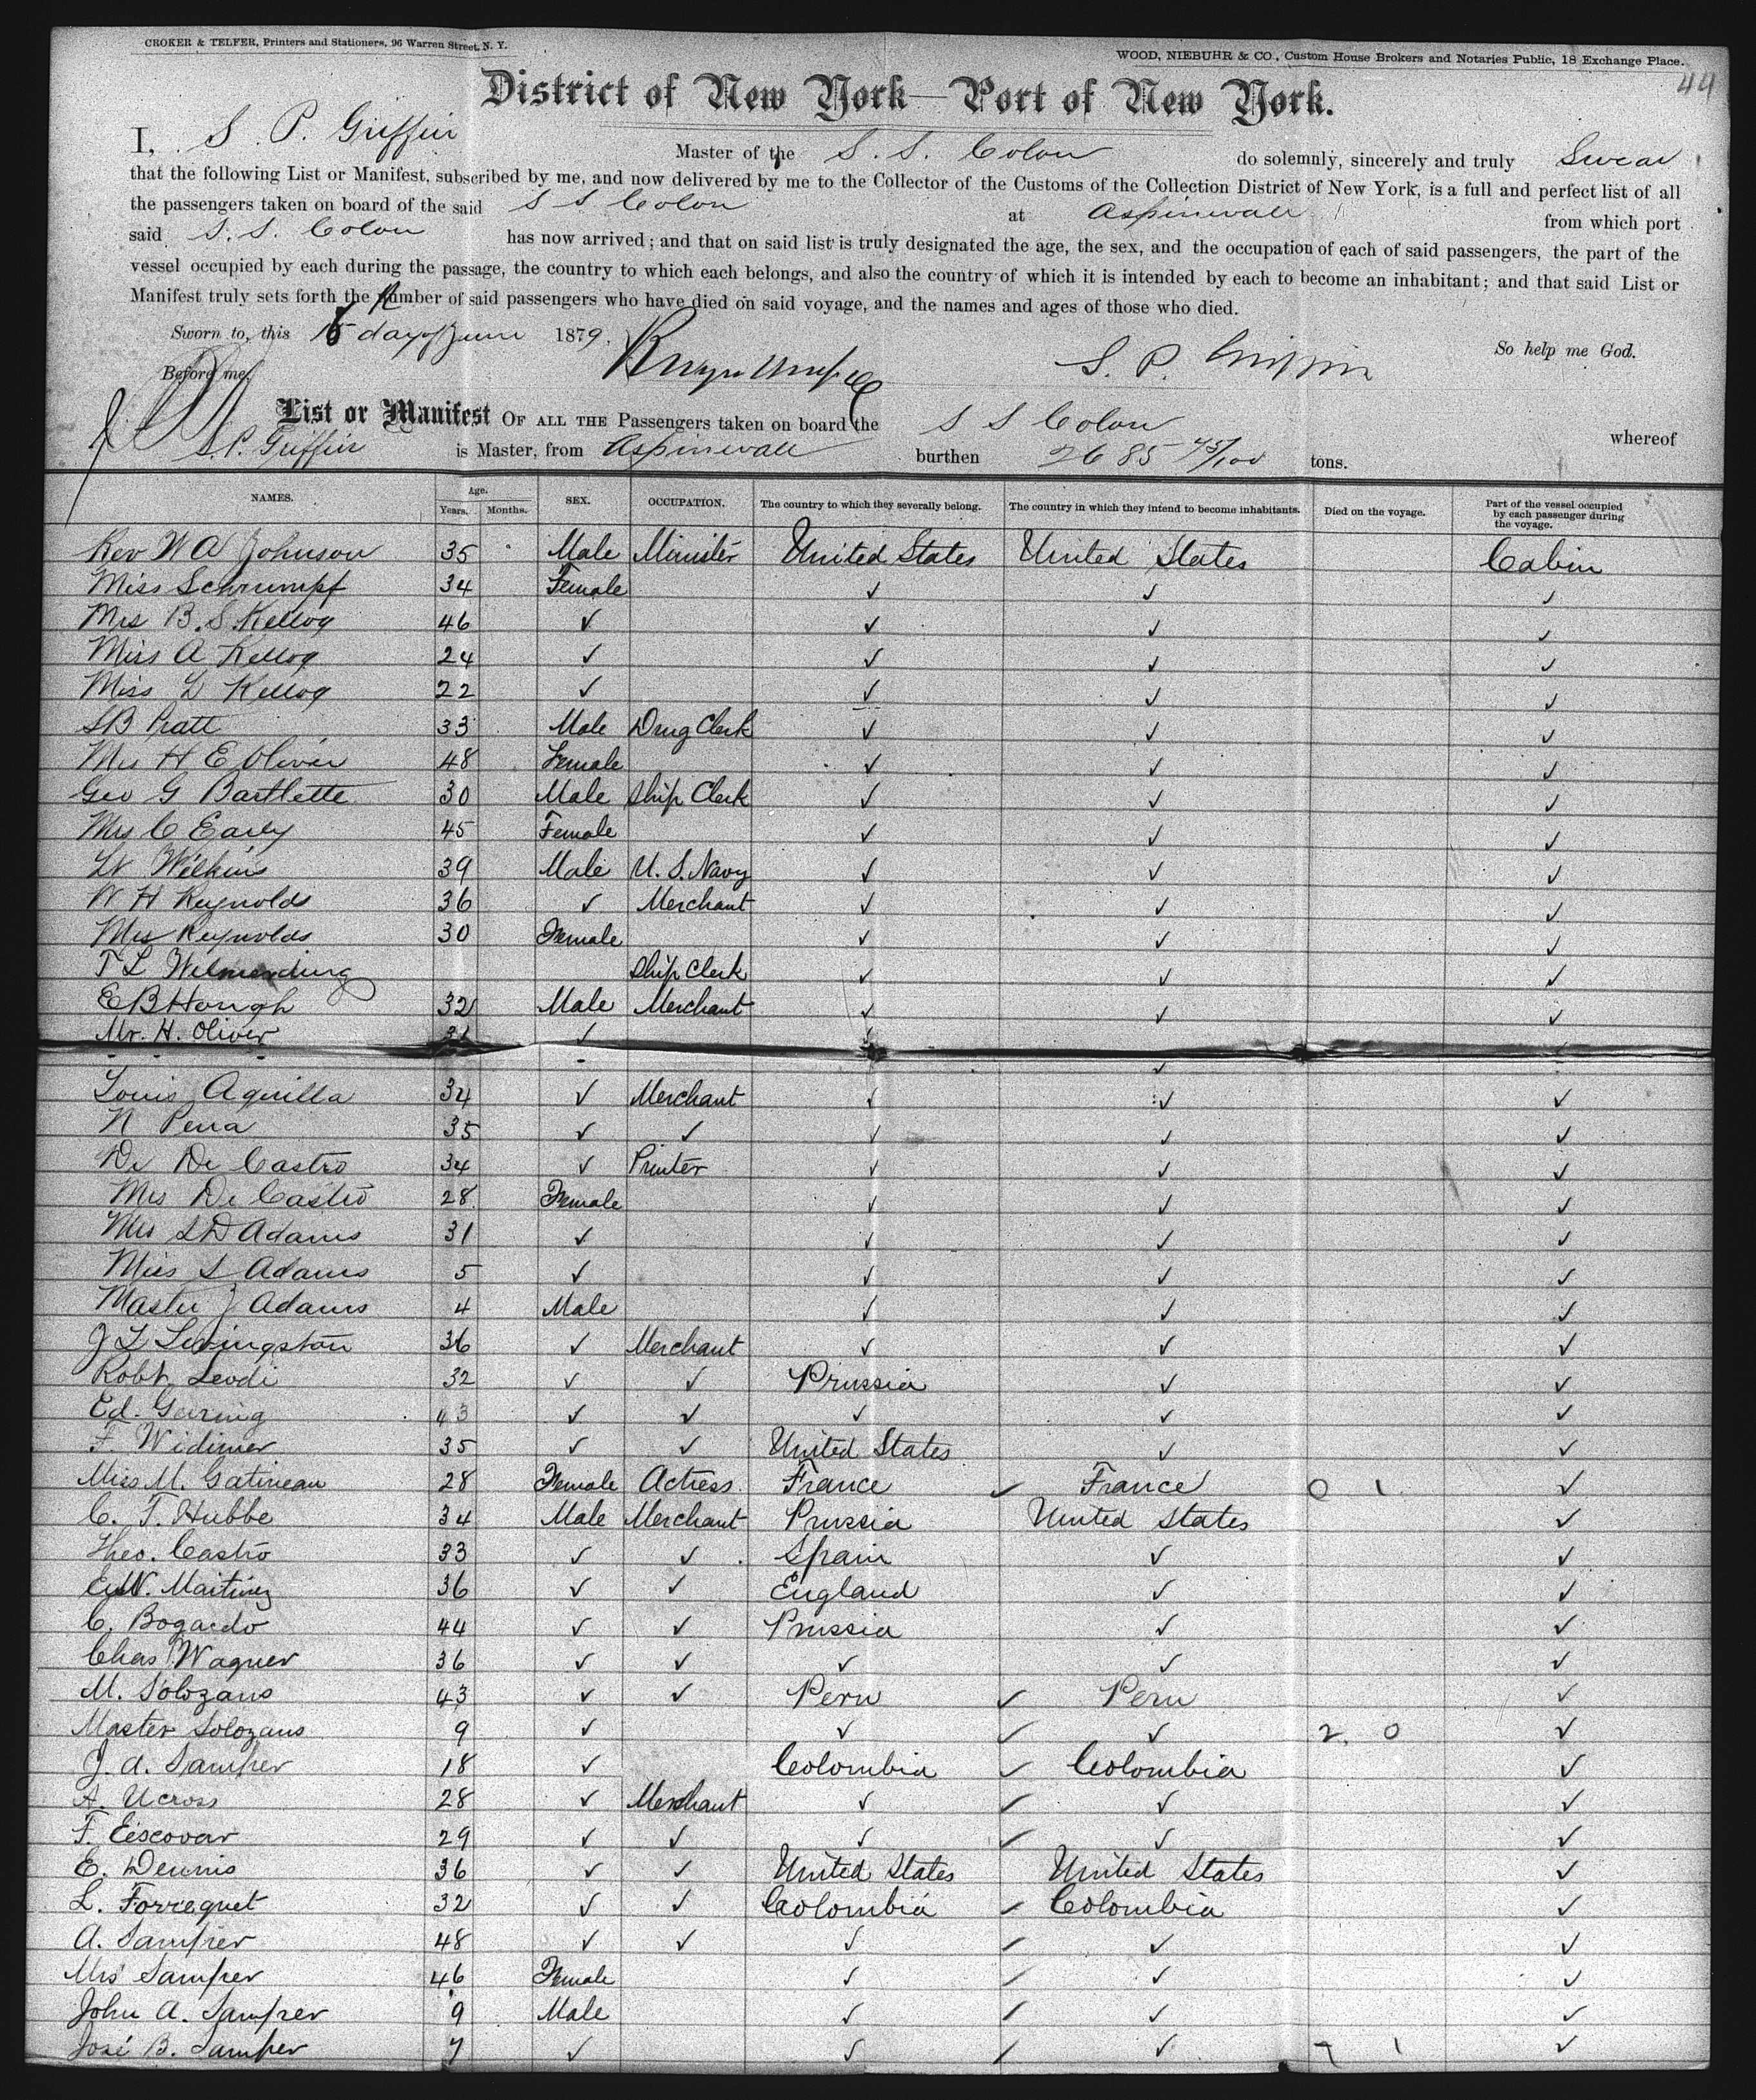 CROKER & TELFER, Printers and Stationers, 96 Warren Street, N. Y.
WOOD, NIEBUHR & CO., Custom House Brokers and Notaries Public, 18 Exchange Place.
44
District of New York—Port of New York.
I, S. P. Griffin Master of the S. S. Colon do solemnly, sincerely and truly Swear
that the following List or Manifest, subscribed by me, and now delivered by me to the Collector of the Customs of the Collection District of New York, is a full and perfect list of all
the passengers taken on board of the said S S Colon at Aspinwall from which port
said S. S. Colon has now arrived; and that on said list is truly designated the age, the sex, and the occupation of each of said passengers, the part of the
vessel occupied by each during the passage, the country to which each belongs, and also the country of which it is intended by each to become an inhabitant; and that said List or
Manifest truly sets forth the number of said passengers who have died on said voyage, and the names and ages of those who died.
Sworn to, this day of June 1879. So help me God.
Before me, S. P. Griffin
List or Manifest OF ALL THE Passengers taken on board the S S Colon whereof
S. P. Griffin is Master, from Aspinwall burthen 2685 45/100 tons.
NAMES. Age. Years. Months. SEX. OCCUPATION. The country to which they severally belong. The country in which they intend to become inhabitants. Died on the voyage. Part of the vessel occupied by each passenger during the voyage.
Rev W A Johnson 35 Male Minister United States United States Cabin
Miss Schrumpf 34 Female ✓ ✓ ✓
Mrs B. S. Kellog 46 ✓ ✓ ✓ ✓
Miss A Kellog 24 ✓ ✓ ✓ ✓
Miss L Kellog 22 ✓ ✓ ✓ ✓
S B Pratt 33 Male Drug Clerk ✓ ✓ ✓
Mrs H E Oliver 48 Female ✓ ✓ ✓
Geo G Bartlette 30 Male Ship Clerk ✓ ✓ ✓
Mrs C Early 45 Female ✓ ✓ ✓
Lt Wilkins 39 Male U. S. Navy ✓ ✓ ✓
W H Reynolds 36 ✓ Merchant ✓ ✓ ✓
Mrs Reynolds 30 Female ✓ ✓ ✓
T L Wilmerding Ship Clerk ✓ ✓ ✓
E B Hough 32 Male Merchant ✓ ✓ ✓
Mr. H. Oliver ✓ ✓ ✓ ✓
Louis Aquilla 34 ✓ Merchant ✓ ✓ ✓
N Pena 35 ✓ ✓ ✓ ✓ ✓
De Castro 34 ✓ Printer ✓ ✓ ✓
Mrs De Castro 28 Female ✓ ✓ ✓
Mrs S D Adams 31 ✓ ✓ ✓ ✓
Miss S Adams 5 ✓ ✓ ✓ ✓
Master J Adams 4 Male ✓ ✓ ✓
J L Livingston 36 ✓ Merchant ✓ ✓ ✓
Robt Leodi 32 ✓ ✓ Prussia ✓ ✓
Ed. Gering 43 ✓ ✓ ✓ ✓ ✓
F. Widimer 35 ✓ ✓ United States ✓ ✓
Miss M. Gatineau 28 Female Actress France ✓ France 0 1 ✓
C. T. Hubbe 34 Male Merchant Prussia United States ✓
Theo. Castro 33 ✓ ✓ Spain ✓ ✓
Martinez 36 ✓ ✓ England ✓ ✓
C. Bogardo 44 ✓ ✓ Prussia ✓ ✓
Chas Wagner 36 ✓ ✓ ✓ ✓ ✓
M. Solozano 43 ✓ ✓ Peru ✓ Peru ✓
Master Solozano 9 ✓ ✓ ✓ ✓ 2 0 ✓
J. A. Samper 18 ✓ Colombia ✓ Colombia ✓
A. Ucross 28 ✓ Merchant ✓ ✓ ✓ ✓
F. Eiscovar 29 ✓ ✓ ✓ ✓ ✓ ✓
E. Dennis 36 ✓ ✓ United States United States ✓
L. Forrequet 32 ✓ ✓ Colombia ✓ Colombia ✓
A. Samper 48 ✓ ✓ ✓ ✓ ✓ ✓
Mrs Samper 46 Female ✓ ✓ ✓ ✓
John A. Samper 9 Male ✓ ✓ ✓ ✓
José B. Samper 7 ✓ ✓ ✓ ✓ 7 1 ✓